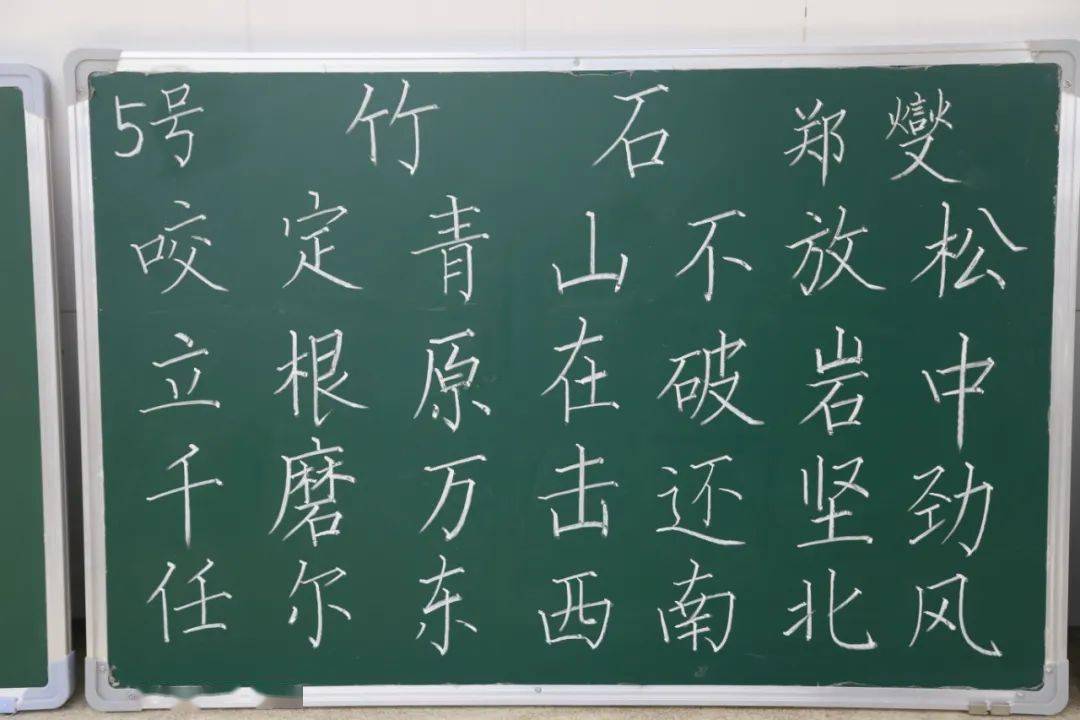 5号 竹 石 郑燮
咬定青山不放松
立根原在破岩中
千磨万击还坚劲
任尔东西南北风